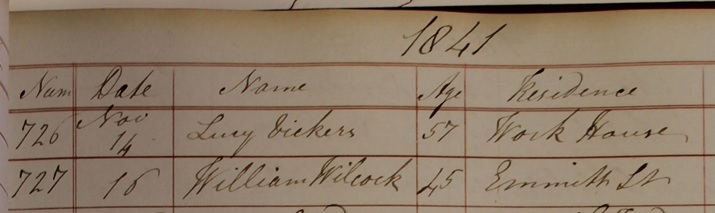 1841
Num Date Name Age Residence
726 Nov 14 Lucy Vickers 57 Work House
727 16 William Wilcock 45 Emmitt St